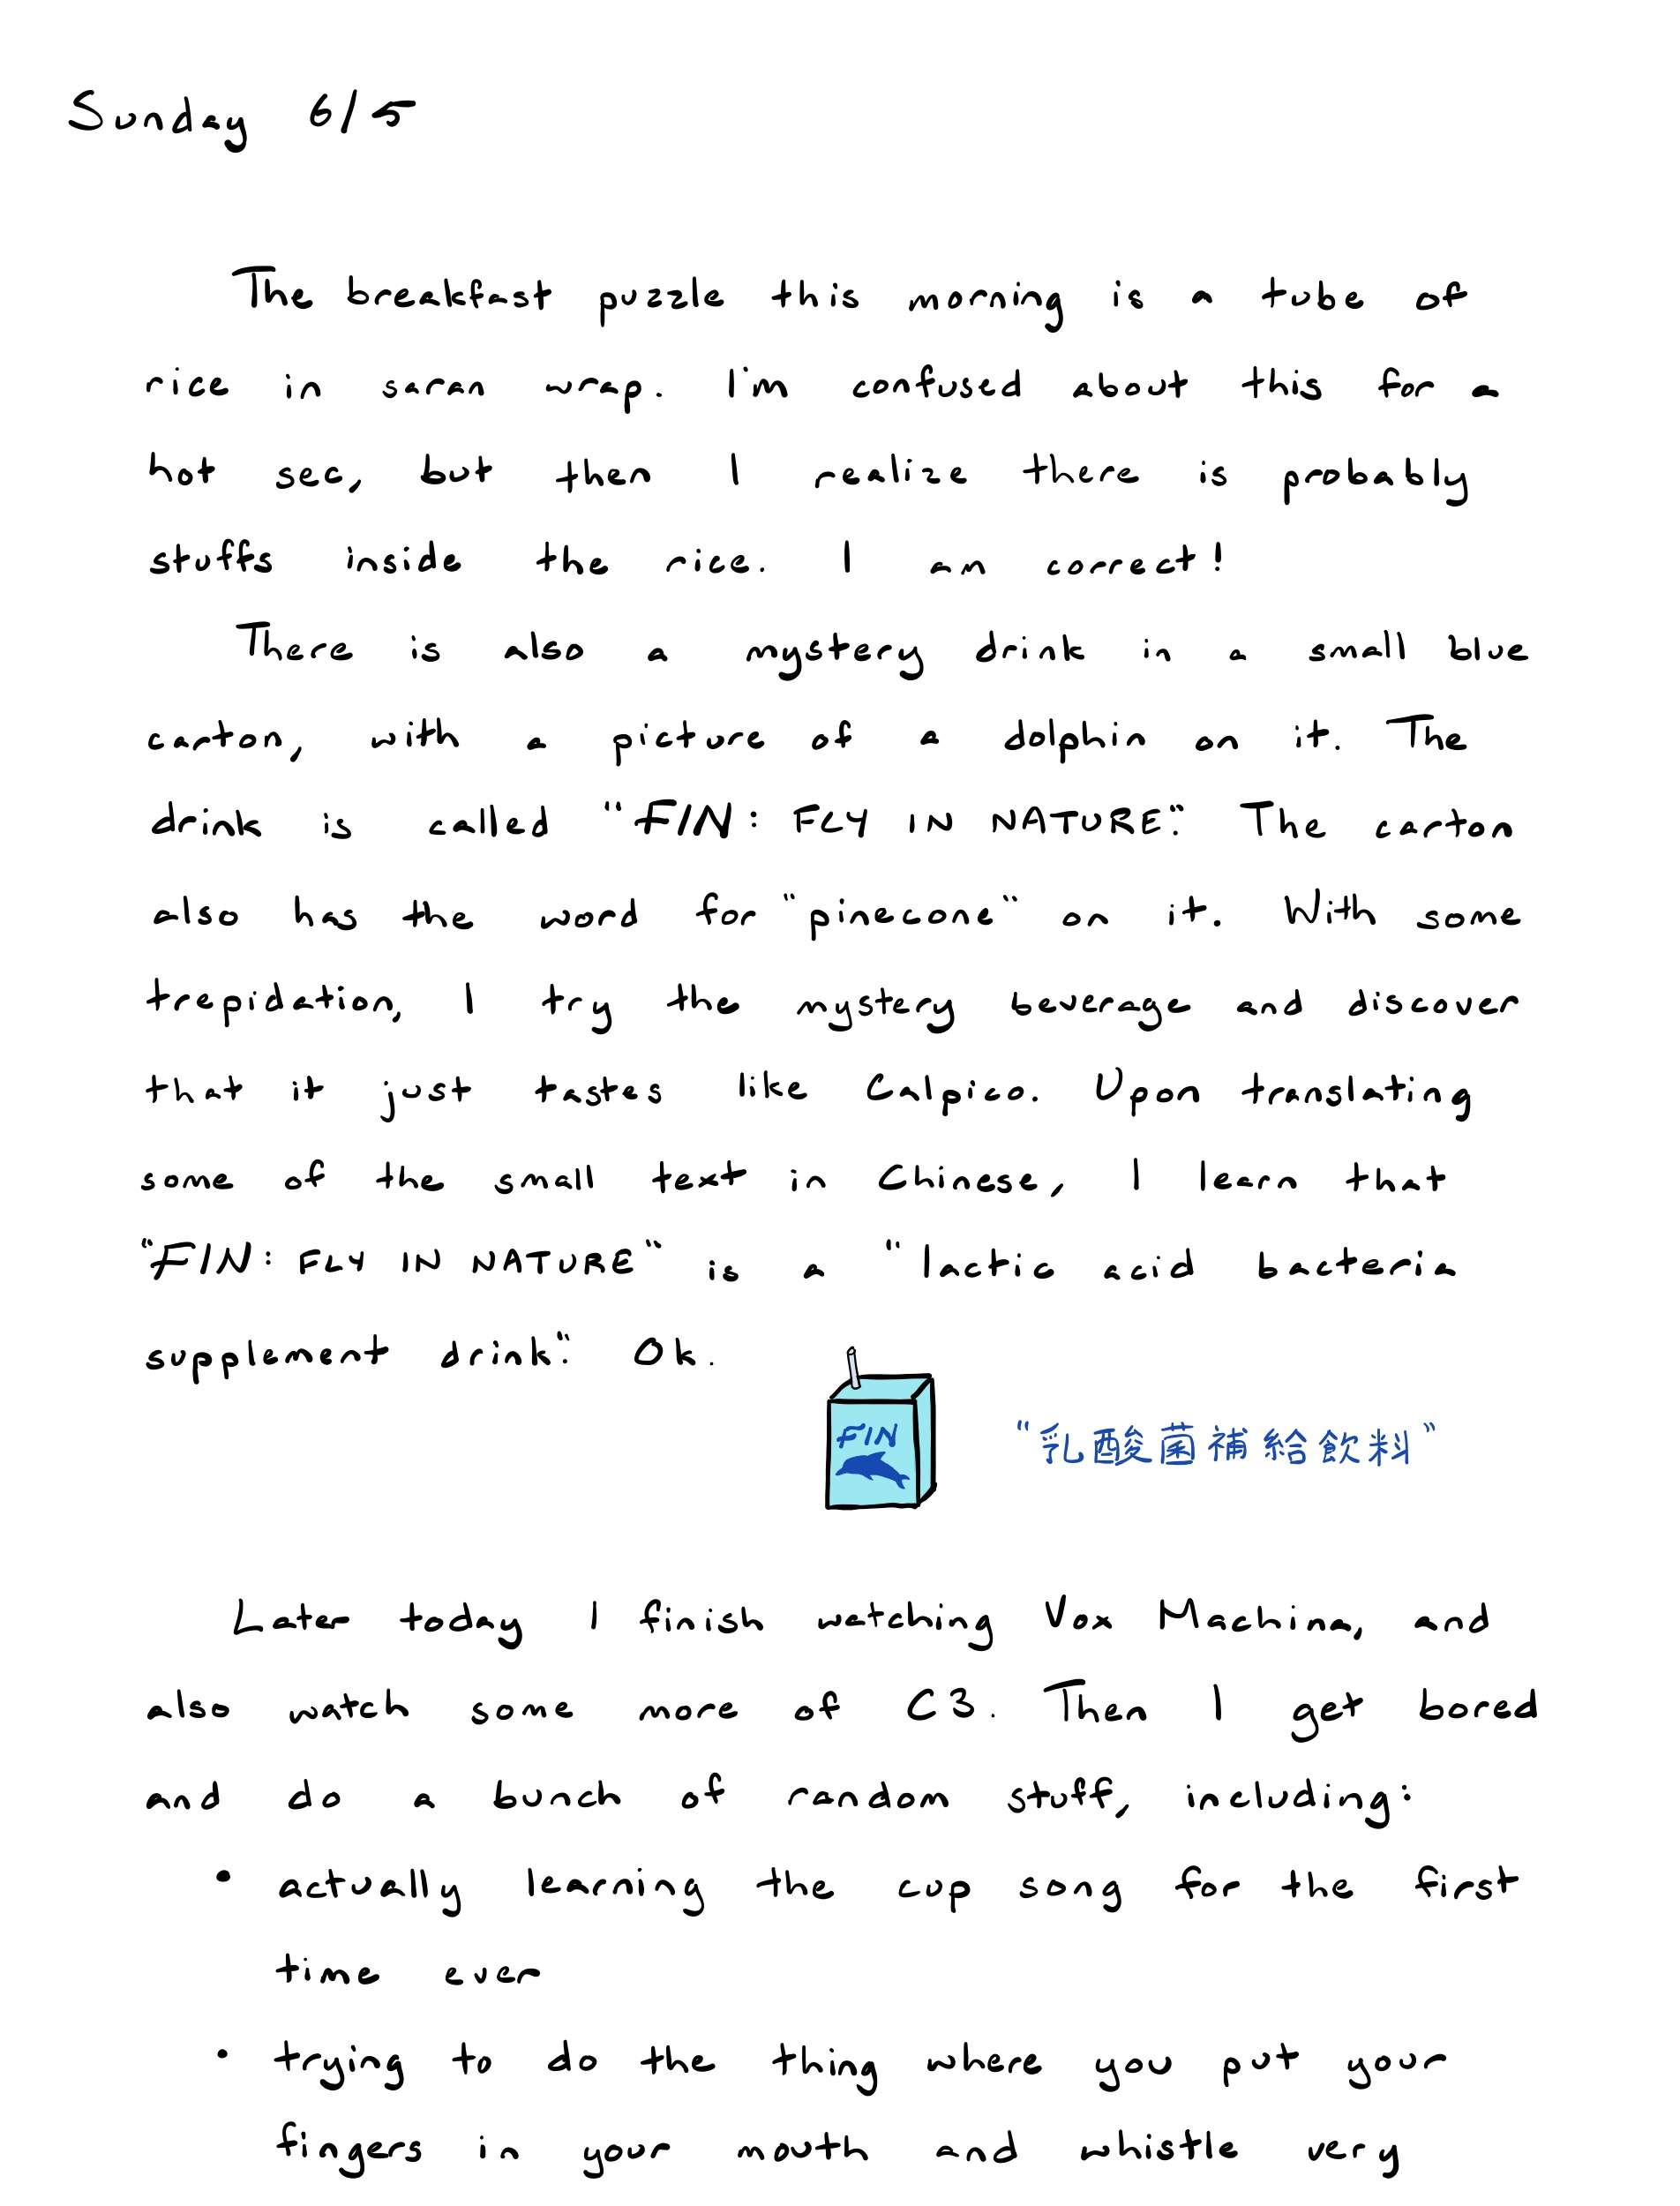 Sunday 6/5
The breakfast puzzle this morning is a tube of
rice in saran wrap. I'm confused about this for a
hot sec, but then I realize there is probably
stuffs inside the rice. I am correct!
There is also a mystery drink in a small blue
carton, with a picture of a dolphin on it. The
drink is called "FIN: FLY IN NATURE". The carton
also has the word for "pinecone" on it. With some
trepidation, I try the mystery beverage and discover
that it just tastes like Calpico. Upon translating
some of the small text in Chinese, I learn that
"FIN: FLY IN NATURE" is a "lactic acid bacteria
supplement drink". Ok.
FIN
"乳酸菌補給飲料"
Later today I finish watching Vox Machina, and
also watch some more of C3. Then I get bored
and do a bunch of random stuff, including:
• actually learning the cup song for the first
time ever
• trying to do the thing where you put your
fingers in your mouth and whistle very